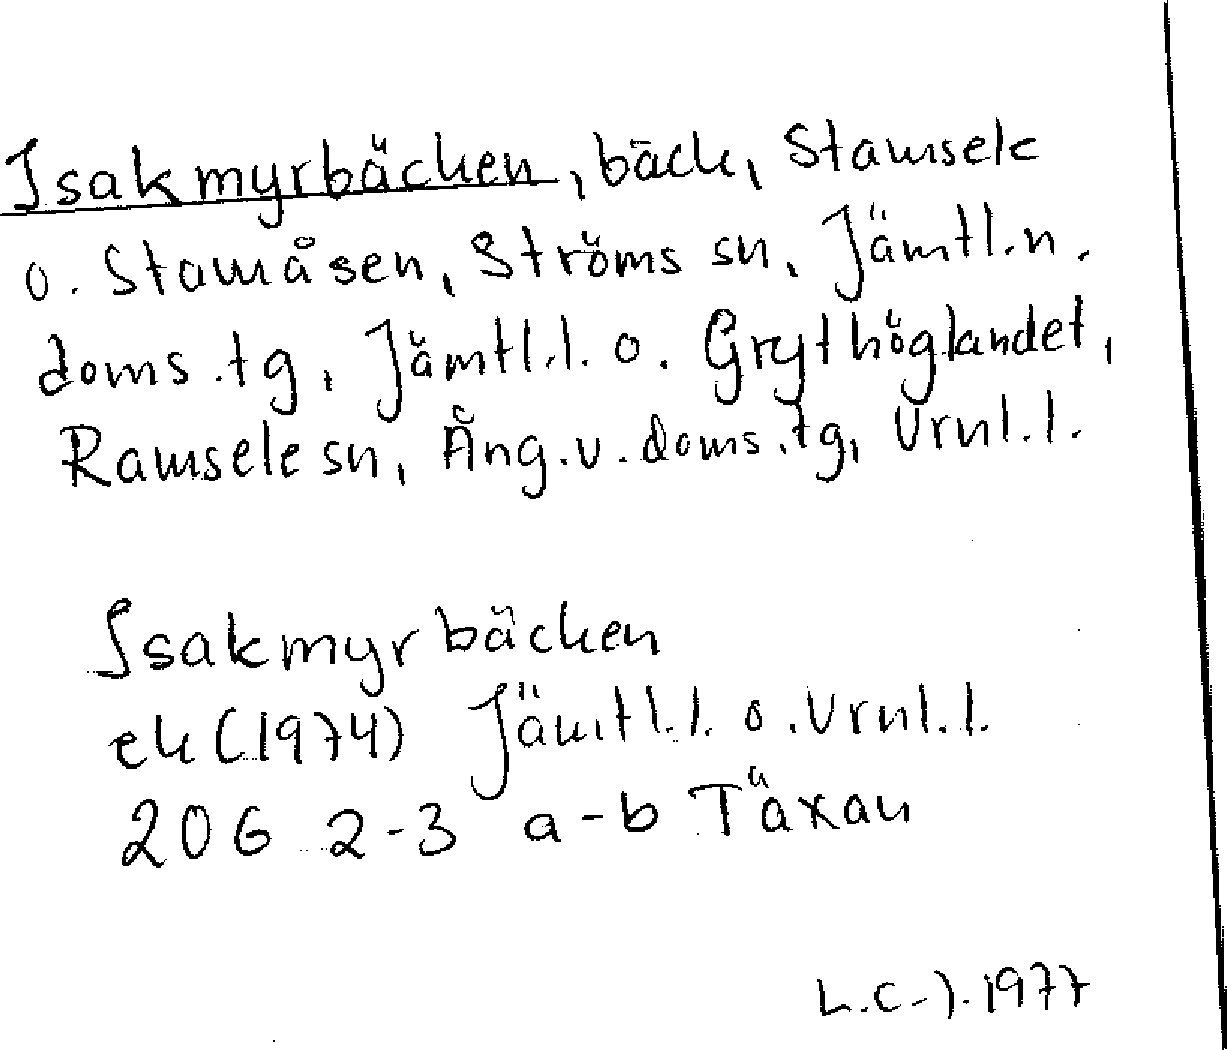 Isakmyrbäcken, bäck, Stamsele
o. Stamåsen, Ströms sn, Jämtl.n.
doms.tg, Jämtl.l. o. Grythöglandet,
Ramsele sn, Ång.v.doms.tg, Vrnl.l.
Isakmyrbäcken
ek (1974) Jämtl.l. o. Vrnl.l.
206 2-3 a-b Täxan
L.C-J. 1977